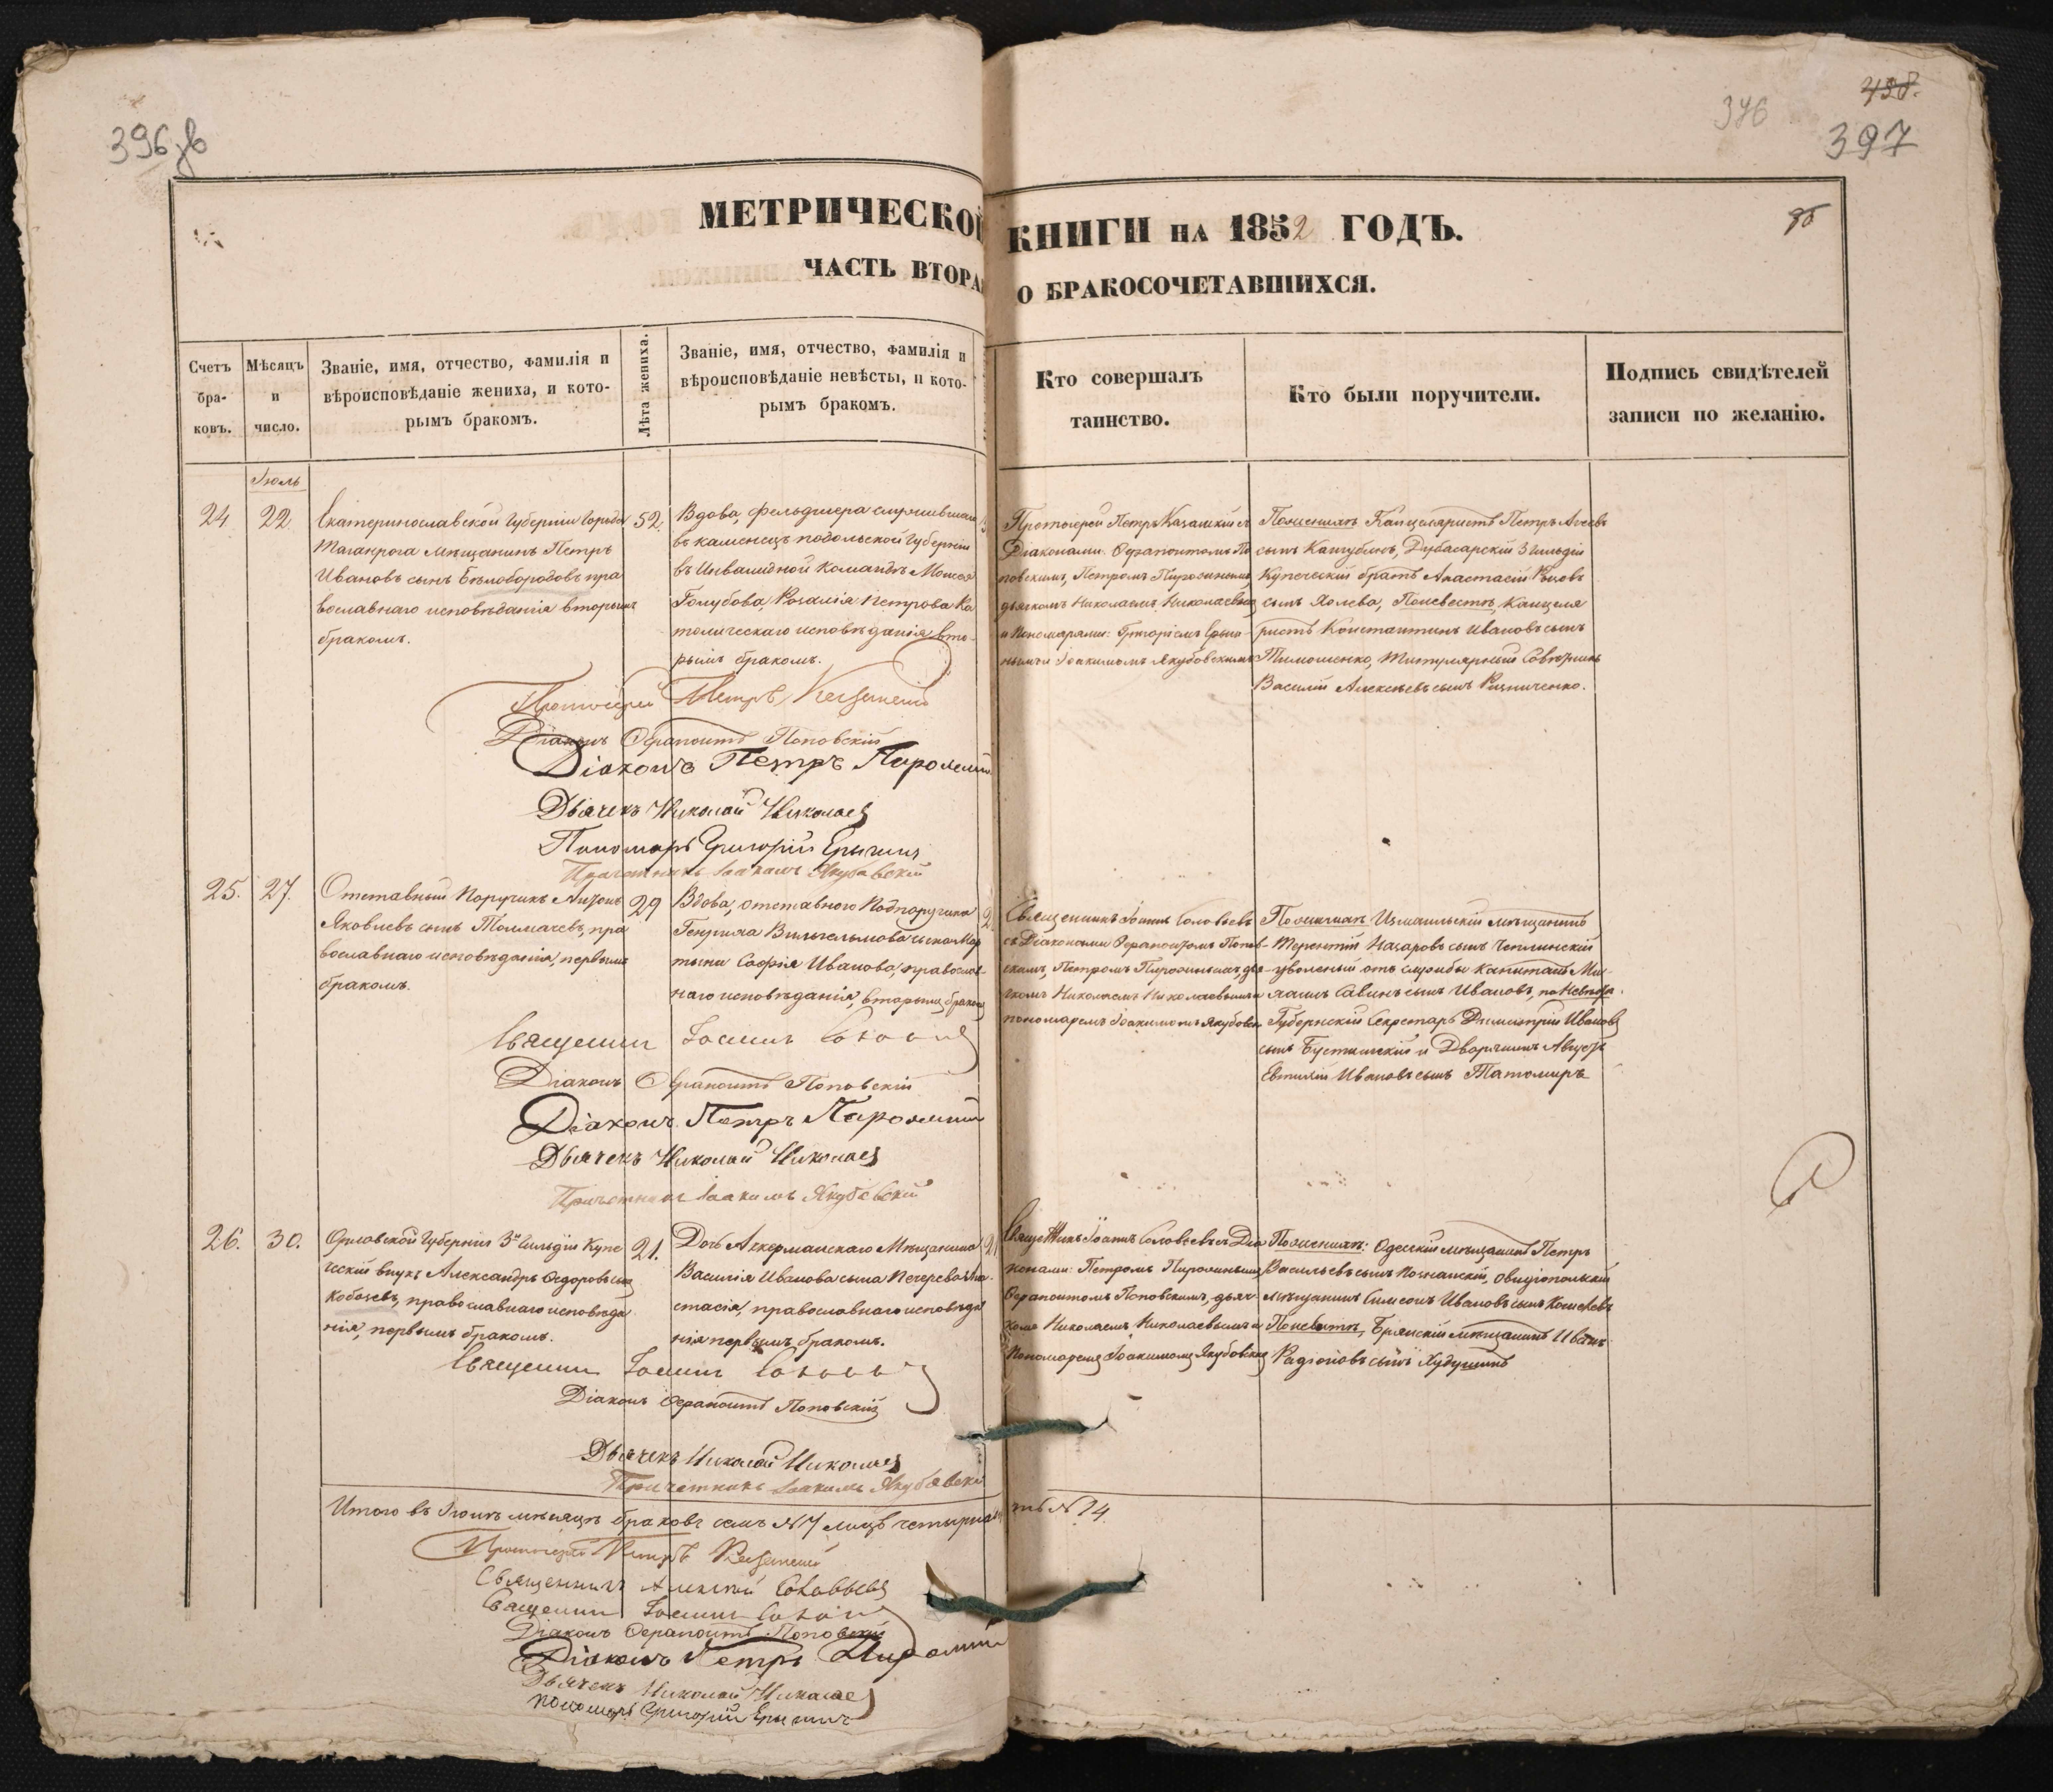 396 об
438.
346
397
МЕТРИЧЕСКОЙ КНИГИ НА 1852 ГОДЪ.
ЧАСТЬ ВТОРАЯ О БРАКОСОЧЕТАВШИХСЯ.
Счетъ браковъ.
Мѣсяцъ и число.
Званіе, имя, отчество, фамилія и
вѣроисповѣданіе жениха, и кото-
рымъ бракомъ.
Лѣта жениха.
Званіе, имя, отчество, фамилія и
вѣроисповѣданіе невѣсты, и кото-
рымъ бракомъ.
Кто совершалъ
таинство.
Кто были поручители.
Подпись свидѣтелей
записи по желанію.
Іюль
24 22.
Екатеринославской Губерніи города
Таганрога мѣщанинъ Петръ
Ивановъ сынъ Бѣлобородовъ пра
вославнаго исповѣданія вторымъ
бракомъ.
52.
Вдова, фельдшера служившаго
въ каменецъ подольской Губерніи
въ Инвалидной командѣ Моисея
Голубова, Розалія Петрова Ка
толическаго исповѣданія вто-
рымъ бракомъ.
Протоіерей Петръ Казанскій съ
Діаконами: Ѳерапонтомъ По
повскимъ, Петромъ
дьячкомъ Николаемъ Николаевымъ
и Пономарями: Григоріемъ
и Іоакимомъ Якубовскимъ
По женихѣ Канцеляристъ Петръ
сынъ Дубасарскій 3 гильдіи
Купеческій братъ Анастасій
сынъ По невестѣ, Канцеля
ристъ Константинъ Ивановъ сынъ
Тимошенко, Титулярный Совѣтникъ
Василій Алексѣевъ сынъ Резниченко.
Протоіерей Петръ Казанскій
Діаконъ Ѳерапонтъ Поповскій
Діаконъ Петръ
Дьячекъ Николай Николаев
Пономарь Григорій
Причетникъ Іоакимъ Якубовскій
25. 27.
Отставный Поручикъ Антонъ
Яковлевъ сынъ Толмачевъ, пра
вославнаго исповѣданія, первымъ
бракомъ.
29
Вдова, отставного Подпоручика
Генриха Вильгельмова сына Мар
тына Софія Иванова, православ-
наго исповѣданія, вторымъ бракомъ
Священникъ Іоаннъ Соловьевъ
съ Діаконами Ѳерапонтомъ Попов-
скимъ, Петромъ дья-
чкомъ Николаемъ Николаевымъ и
пономаремъ Іоакимомъ Якубовск
По женихѣ Измаильскій мѣщанинъ
Терентій Назаровъ сынъ
уволеный отъ службы Капитанъ Ми-
хаилъ Савинъ сынъ Ивановъ, по невѣстѣ
Губернскій Секретарь Димитрій Ивановъ
сынъ и Дворянинъ
Евтихій Ивановъ сынъ Татомиръ
Священникъ Іоаннъ Соловьев
Діаконъ Ѳерапонтъ Поповскій
Діаконъ Петръ
Дьячекъ Николай Николаев
Причетникъ Іоакимъ Якубовскій
26. 30.
Орловской Губерніи 3й Гильдіи Купе
ческій внукъ Александръ Ѳедоровъ сынъ
Кобозевъ, православнаго исповѣда
нія, первымъ бракомъ.
21.
Дочь Аккерманскаго Мѣщанина
Василія Иванова сына Печерева Ана-
стасія, православнаго исповѣда
нія первымъ бракомъ.
21
Священникъ Іоаннъ Соловьевъ съ Діа
конами: Петромъ
Ѳерапонтомъ Поповскимъ, дьяч-
комъ Николаемъ Николаевымъ и
Пономаремъ Іоакимомъ Якубовским
По женихѣ: Одесскій мѣщанинъ Петръ
Васильевъ сынъ Познанскій, Овидіопольскій
мѣщанинъ Симеонъ Ивановъ сынъ Кошевевъ
По невѣстѣ, Брянскій мѣщанинъ Иванъ
Радіоновъ сынъ Худушинъ
Священникъ Іоаннъ Соловьев
Діаконъ Ѳерапонтъ Поповскій
Дьячекъ Николай Николаев
Причетникъ Іоакимъ Якубовскій
Итого въ Іюлѣ мѣсяцѣ браковъ семь N 7 лицъ четырнадцать N 14.
Протоіерей Петръ Казанскій
Священникъ Алексѣй Соловьевъ
Священникъ Іоаннъ Соловьев
Діаконъ Ѳерапонтъ Поповскій
Діаконъ Петръ
Дьячекъ Николай Николаев
Пономарь Григорій